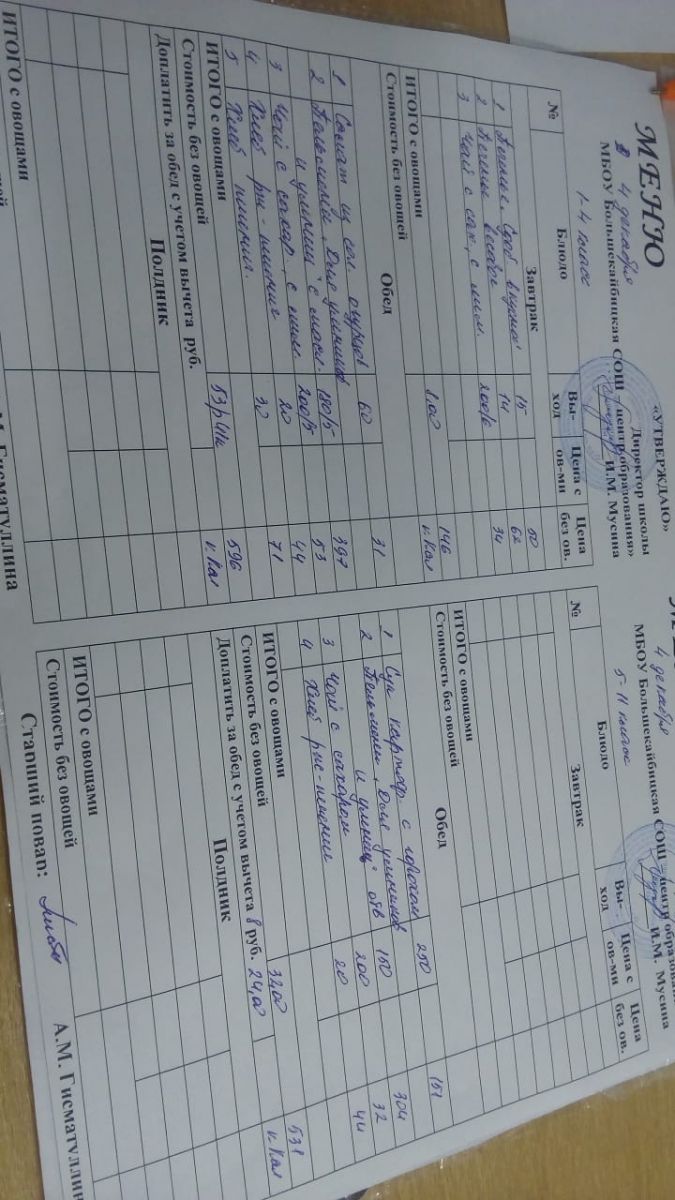 МЕНЮ
«УТВЕРЖДАЮ»
Директор школы
4 декабря
МБОУ Большекайбицкая СОШ – центр образования»
И.М. Мусина
1-4 класс
№ Блюдо Вы-ход Цена с ов-ми Цена без ов.
Завтрак
1 15 50
2 Печенье 14 62
3 Чай с сах, с лим. 200/6 34
ИТОГО с овощами 8.00 146
Стоимость без овощей к.Кал
Обед
1 Салат из сол огурцов 60 31
2 Пельмени "Доме ужинаем 180/5 397
и ужинаем" с масл. 200/5 53
3 Чай с сахар, с лим. 20 44
4 Хлеб рже-пшенич 30 71
5 Хлеб пшенич.
ИТОГО с овощами 53р41к 596
Стоимость без овощей к.Кал
Доплатить за обед с учетом вычета руб.
Полдник
ИТОГО с овощами
М. Гисматуллина
4 декабря
МБОУ Большекайбицкая СОШ – центр образован
И.М. Мусина
5-11 класс
№ Блюдо Вы-ход Цена с ов-ми Цена без ов.
Завтрак
ИТОГО с овощами
Стоимость без овощей
Обед
1 Суп картоф. с горохом 250 151
2 Пельмени "Доме ужинаем 150 304
и ужинаем" отв 200 32
3 Чай с сахаром 20 44
4 Хлеб рже-пшенич
ИТОГО с овощами 32,00 531
Стоимость без овощей 24,00 к.Кал
Доплатить за обед с учетом вычета 8 руб.
Полдник
ИТОГО с овощами
Стоимость без овощей
Старший повар: А.М. Гисматуллин